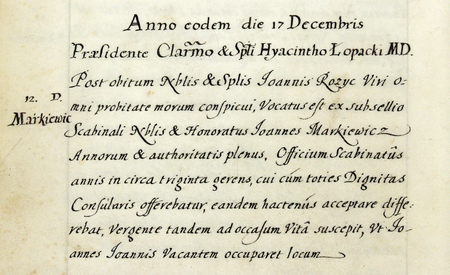 Anno eodem die 17 Decembris
Præsidente Clarm̃o & Spl̃i Hyacintho Łopacki MD.
Post obitum Nb̃lis & Splis Ioannis Rozyc Viri o-
mni probitate morum conspicui, Vocatus est ex subsellio
12. D.
Markiewic
Scabinali Nb̃lis & Honoratus Ioannes Markiewicz
Annorum & authoritatis plenus, Officium Scabinatûs
annis in circa triginta gerens, cui cùm toties Dignitas
Consularis offerebatur, eandem hactenùs acceptare diffe-
rebat, Vergente tandem ad occasum Vitâ suscepit, Vt Io-
annes Ioannis Vacantem occuparet locum